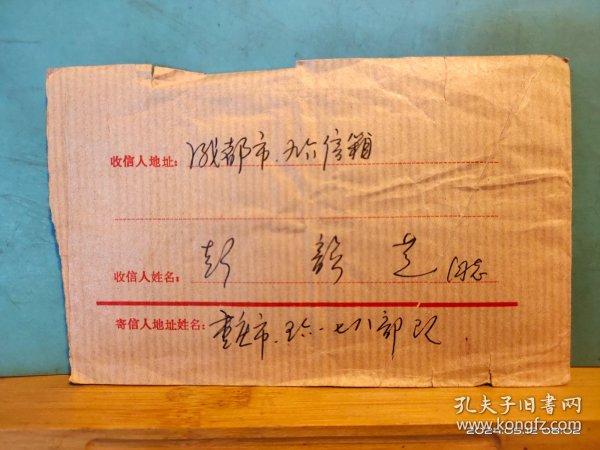 收信人地址：成都市．九六信箱
收信人姓名：彭 同志
寄信人地址姓名：重庆市．五六一七八部队．
孔夫子旧书网
www.kongfz.com
2024.05.12 08:02